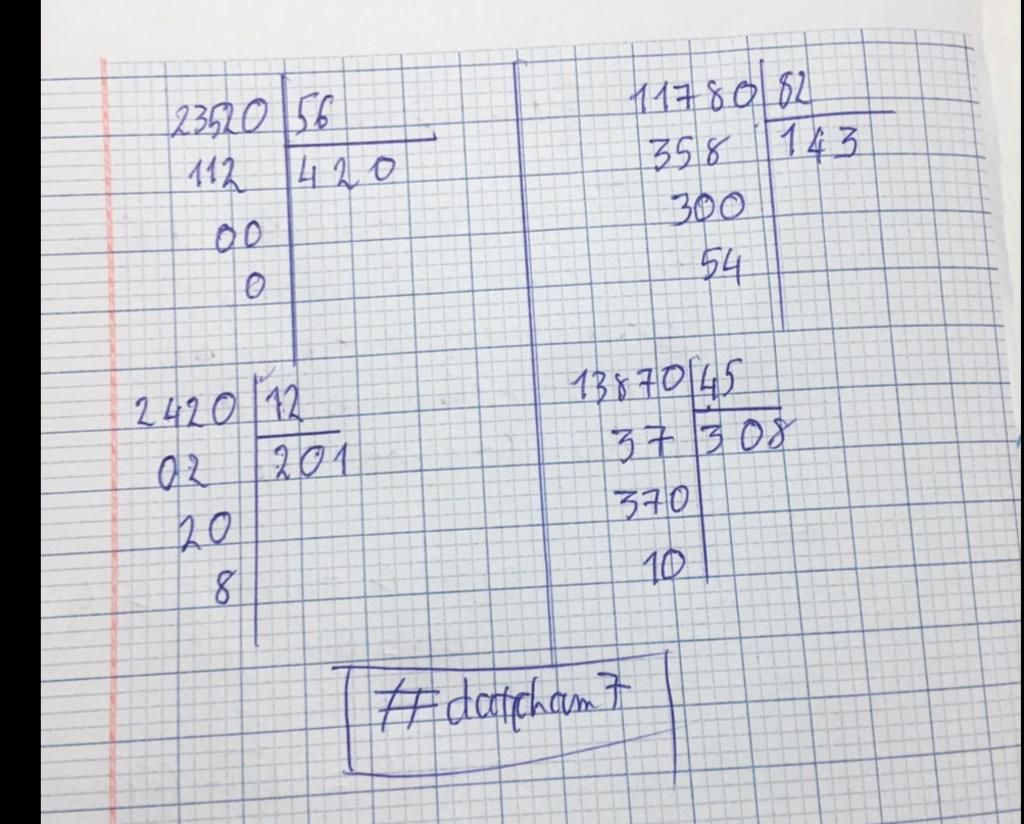 23520 56
112 420
00
0
11780 82
358 143
300
54
2420 12
02 201
20
8
13870 45
37 308
370
10
#datpham7